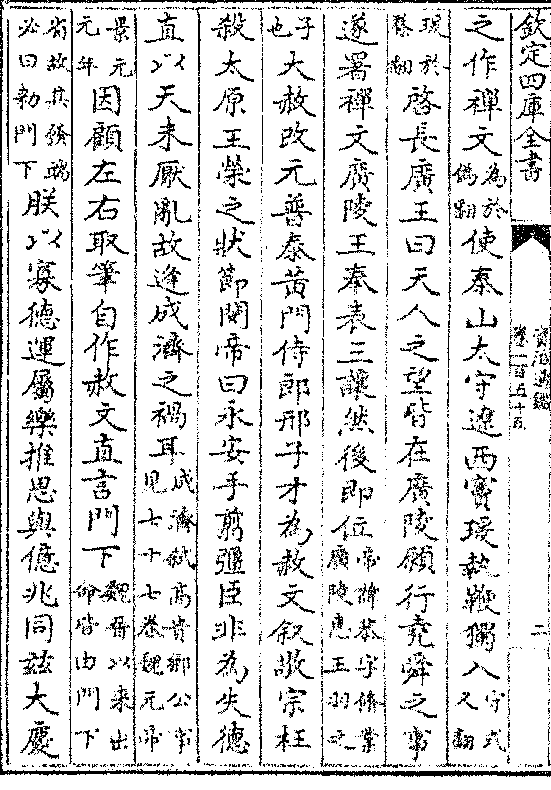 欽定四庫全書
資治通鑑
卷一百五十五
二
之作禪文為於偽翻使泰山太守遼西竇瑗執鞭獨入守式又翻
瑗於眷翻啓長廣王曰天人之望皆在廣陵願行堯舜之事
遂署禪文廣陵王奉表三讓然後即位帝諱恭字脩業廣陵惠王羽之
子也大赦改元普泰黃門侍郎邢子才為赦文叙敬宗枉
殺太原王榮之狀節閔帝曰永安手翦彊臣非為失德
直以天未厭亂故逢成濟之禍耳成濟弑高貴鄉公事見七十七卷魏元帝
景元元年因顧左右取筆自作赦文直言門下魏晉以來出命皆由門下
省故其發端必曰敕門下朕以寡德運屬樂推思與億兆同兹大慶